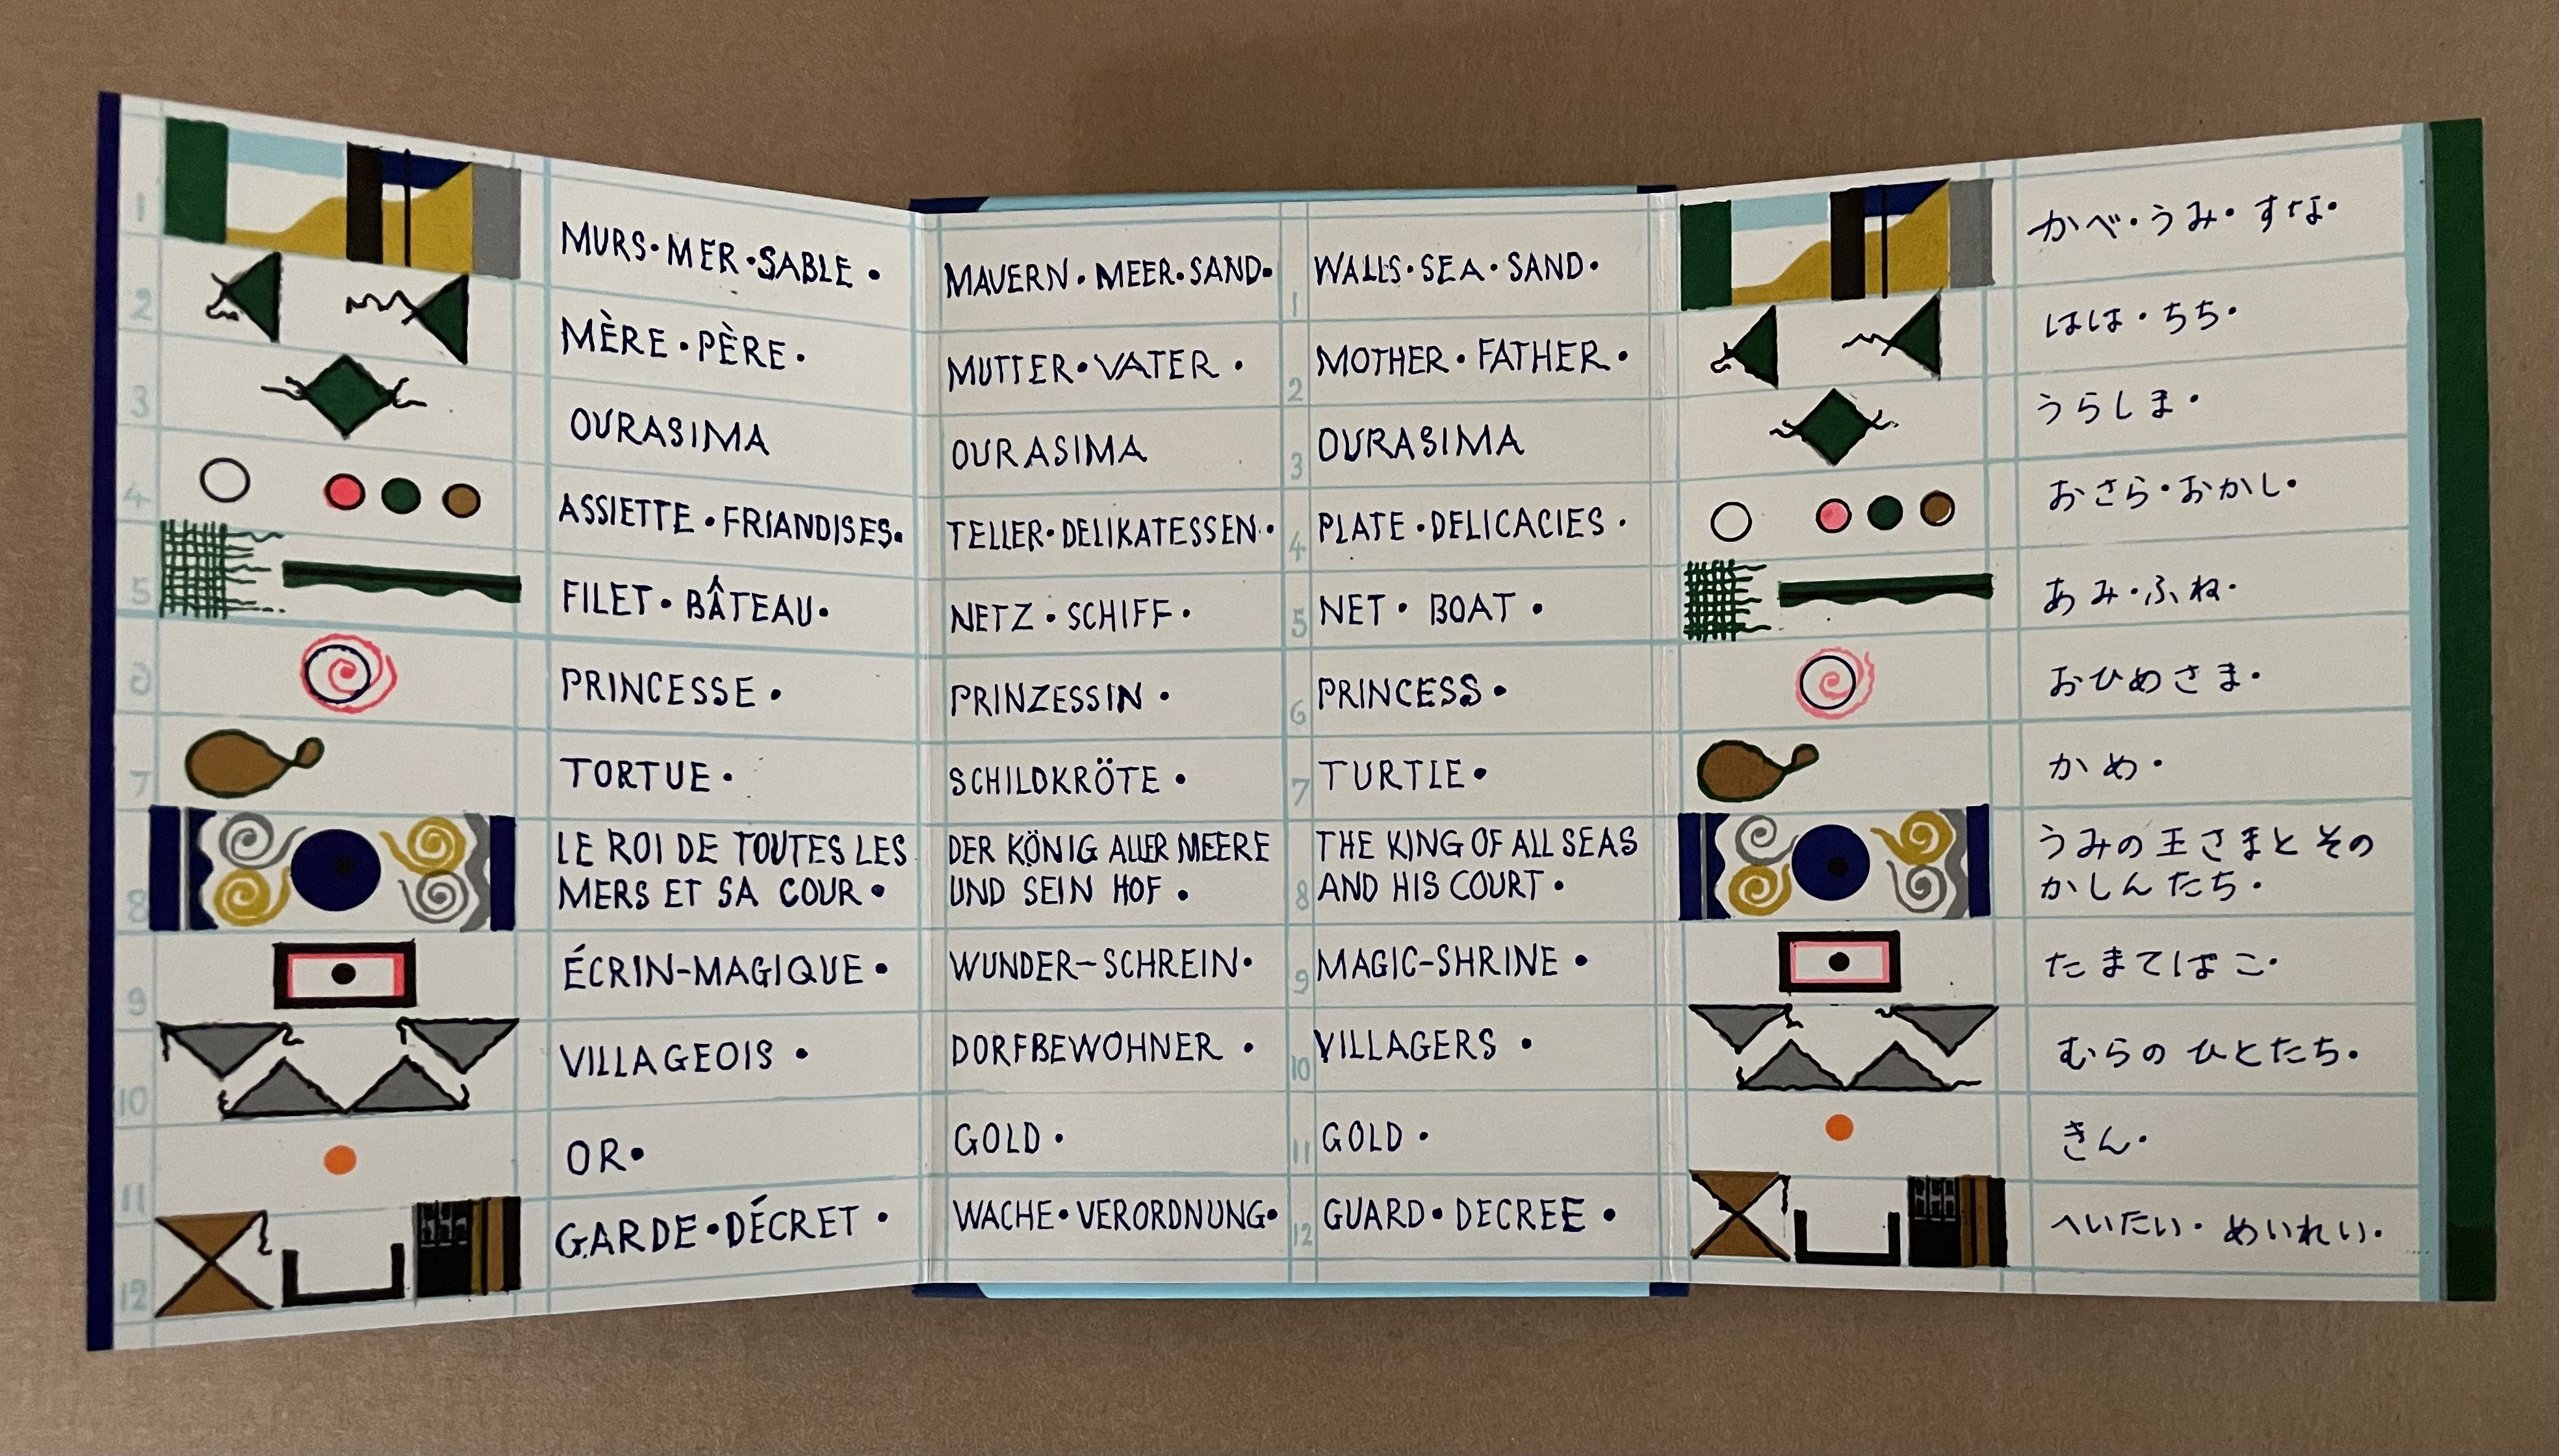 1
MURS·MER·SABLE·
MAUERN·MEER·SAND·
1
WALLS·SEA·SAND·
かべ·うみ·すな·
2
MÈRE·PÈRE·
MUTTER·VATER·
2
MOTHER·FATHER·
はは·ちち·
3
OURASIMA
OURASIMA
3
OURASIMA
うらしま·
4
ASSIETTE·FRIANDISES·
TELLER·DELIKATESSEN·
4
PLATE·DELICACIES·
おさら·おかし·
5
FILET·BÂTEAU·
NETZ·SCHIFF·
5
NET·BOAT·
あみ·ふね·
6
PRINCESSE·
PRINZESSIN·
6
PRINCESS·
おひめさま·
7
TORTUE·
SCHILDKRÖTE·
7
TURTLE·
かめ·
8
LE ROI DE TOUTES LES
MERS ET SA COUR·
DER KÖNIG ALLER MEERE
UND SEIN HOF·
8
THE KING OF ALL SEAS
AND HIS COURT·
うみの王さまとその
かしんたち·
9
ÉCRIN-MAGIQUE·
WUNDER-SCHREIN·
9
MAGIC-SHRINE·
たまてばこ·
10
VILLAGEOIS·
DORFBEWOHNER·
10
VILLAGERS·
むらのひとたち·
11
OR·
GOLD·
11
GOLD·
きん·
12
GARDE·DÉCRET·
WACHE·VERORDNUNG·
12
GUARD·DECREE·
へいたい·めいれい·